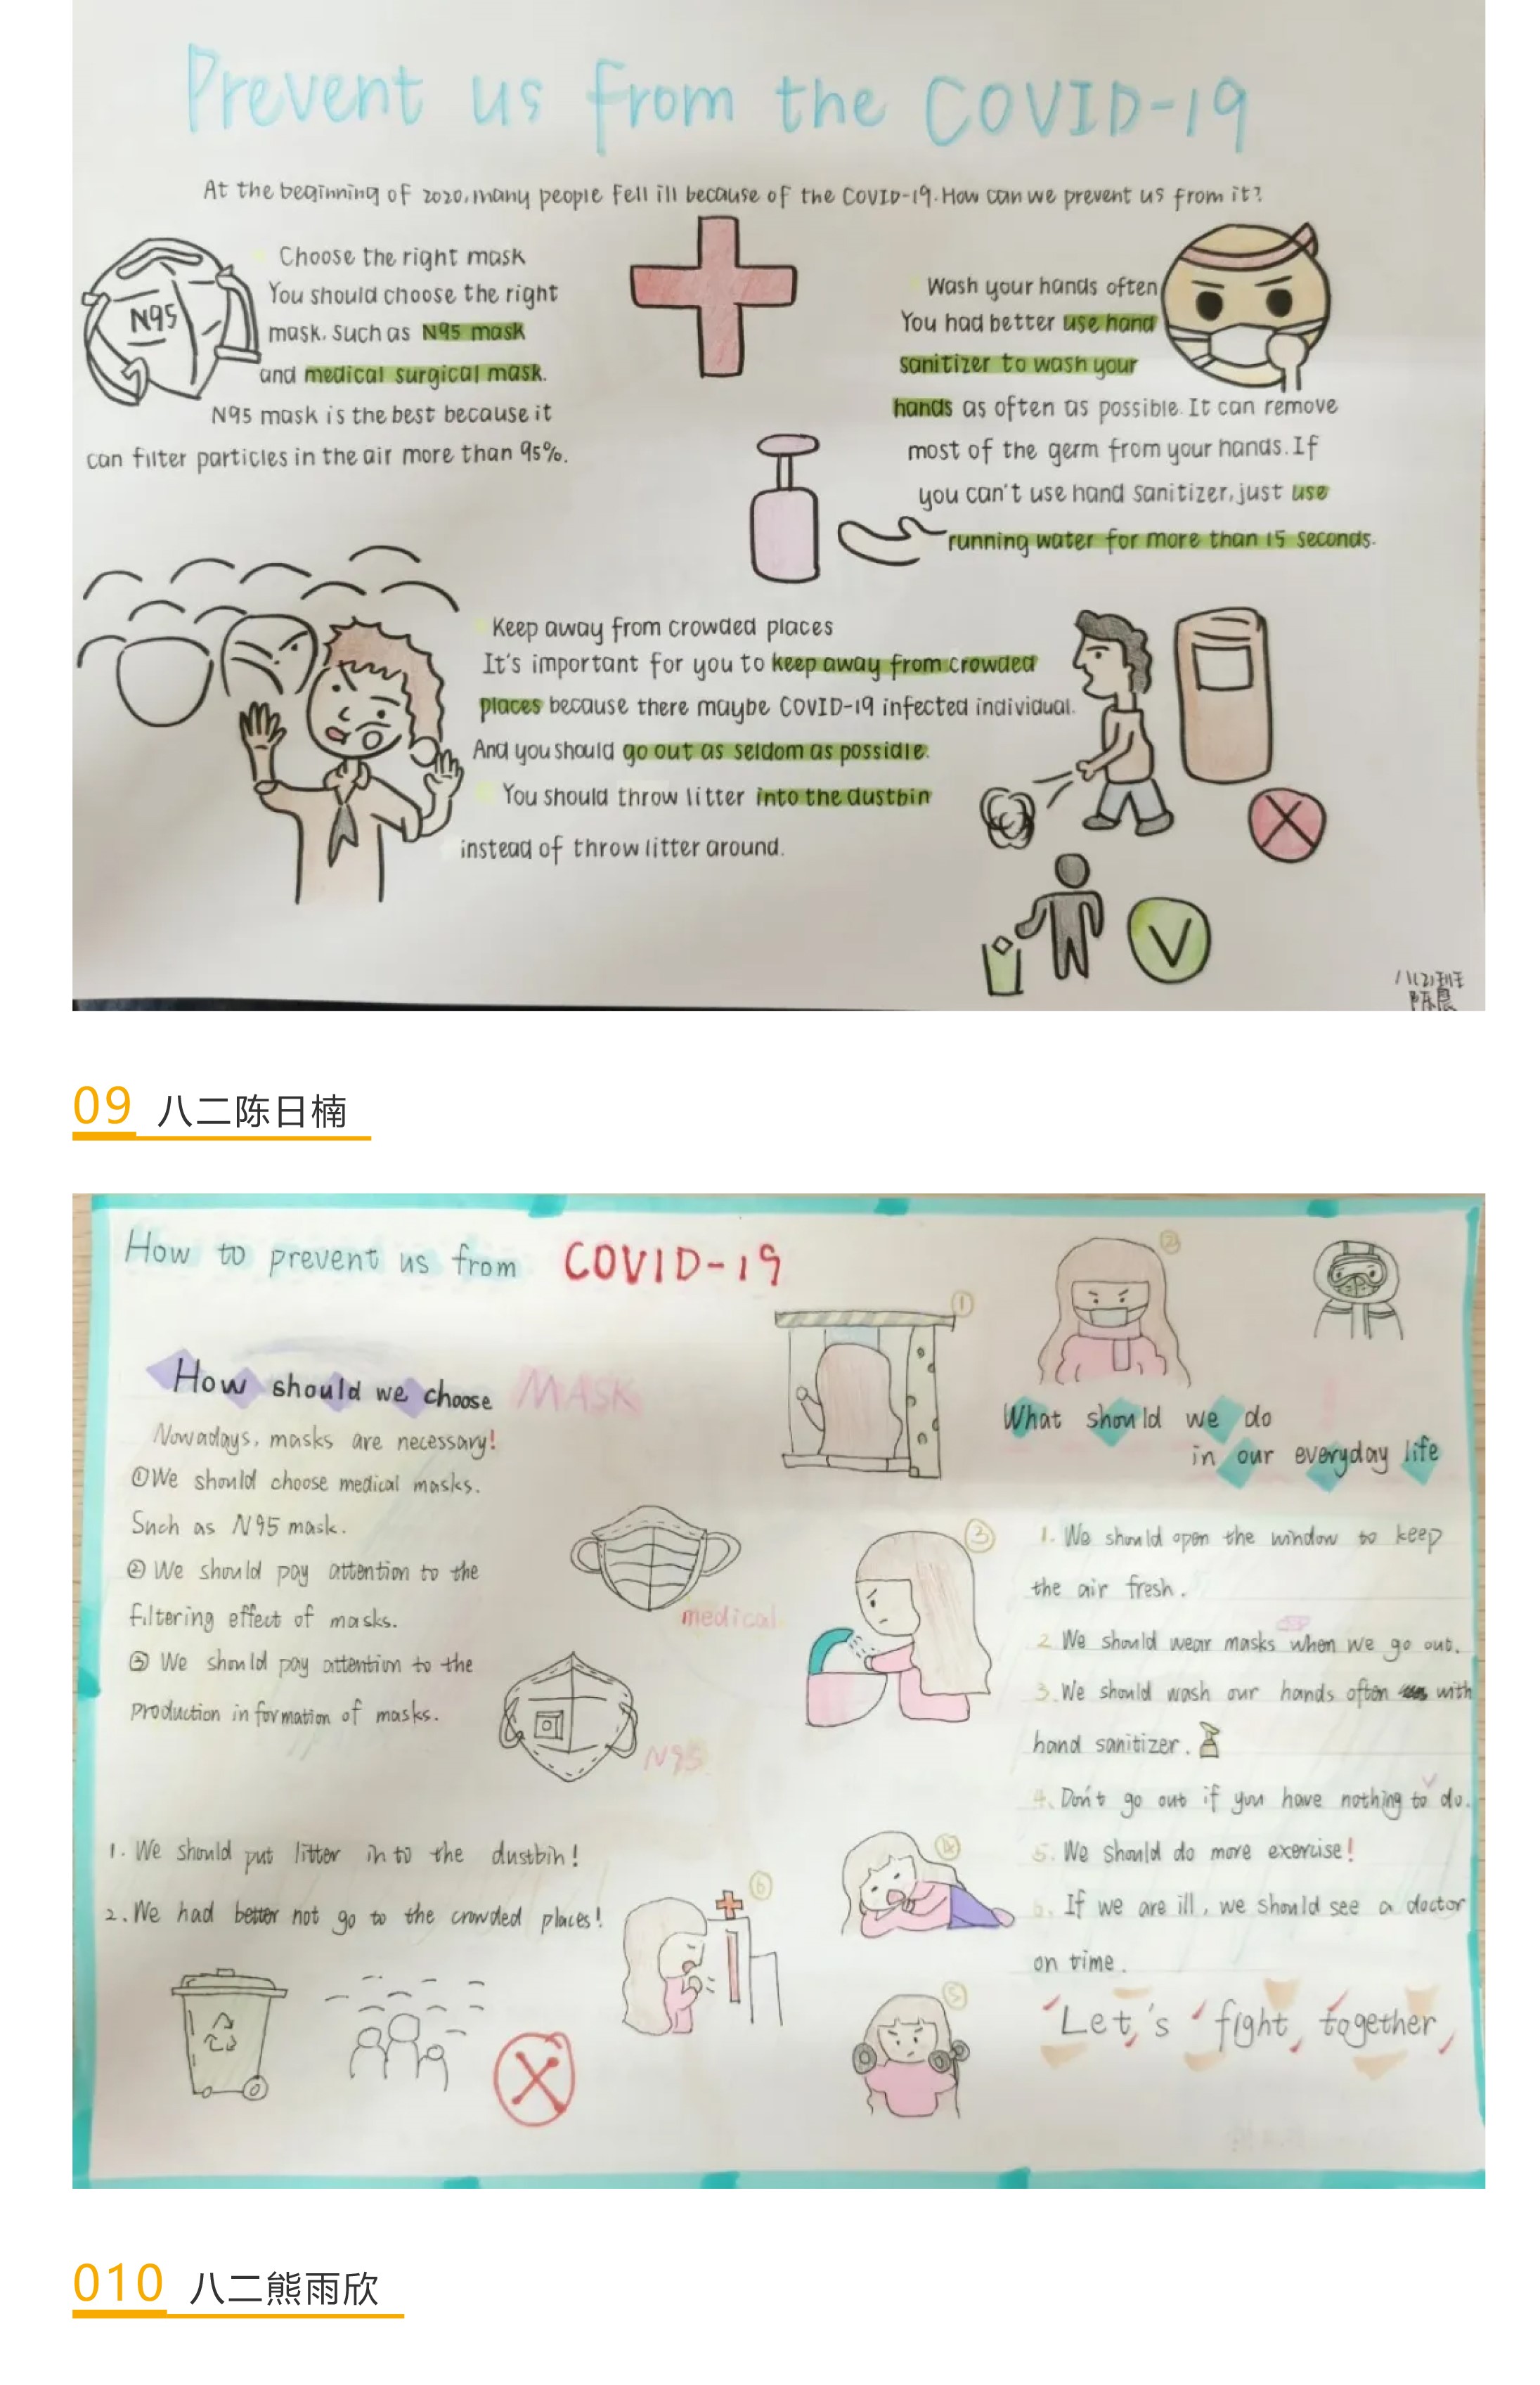 Prevent us from the COVID-19
At the beginning of 2020, many people fell ill because of the COVID-19. How can we prevent us from it?
Choose the right mask
You should choose the right
mask, such as N95 mask
and medical surgical mask.
N95 mask is the best because it
can filter particles in the air more than 95%.
N95
Wash your hands often
You had better use hand
sanitizer to wash your
hands as often as possible. It can remove
most of the germ from your hands. If
you can't use hand sanitizer, just use
running water for more than 15 seconds.
Keep away from crowded places
It's important for you to keep away from crowded
places because there maybe COVID-19 infected individual.
And you should go out as seldom as possidle.
You should throw litter into the dustbin
instead of throw litter around.
八(2)班
09 八二陈日楠
How to prevent us from COVID-19
How should we choose MASK
Nowadays, masks are necessary!
①We should choose medical masks.
Snch as N95 mask.
② We should pay attention to the
filtering effect of masks.
③ We should pay attention to the
production information of masks.
medical
N95
1. We should put litter into the dustbin!
2. We had better not go to the crowded places!
①
②
③
④
⑤
⑥
What should we do
in our everyday life
1. We should open the window to keep
the air fresh.
2 We should wear masks when we go out.
3. We should wash our hands often with
hand sanitizer.
4. Don't go out if you have nothing to do.
5. We should do more exercise!
6. If we are ill, we should see a doctor
on time.
Let's fight together
010 八二熊雨欣